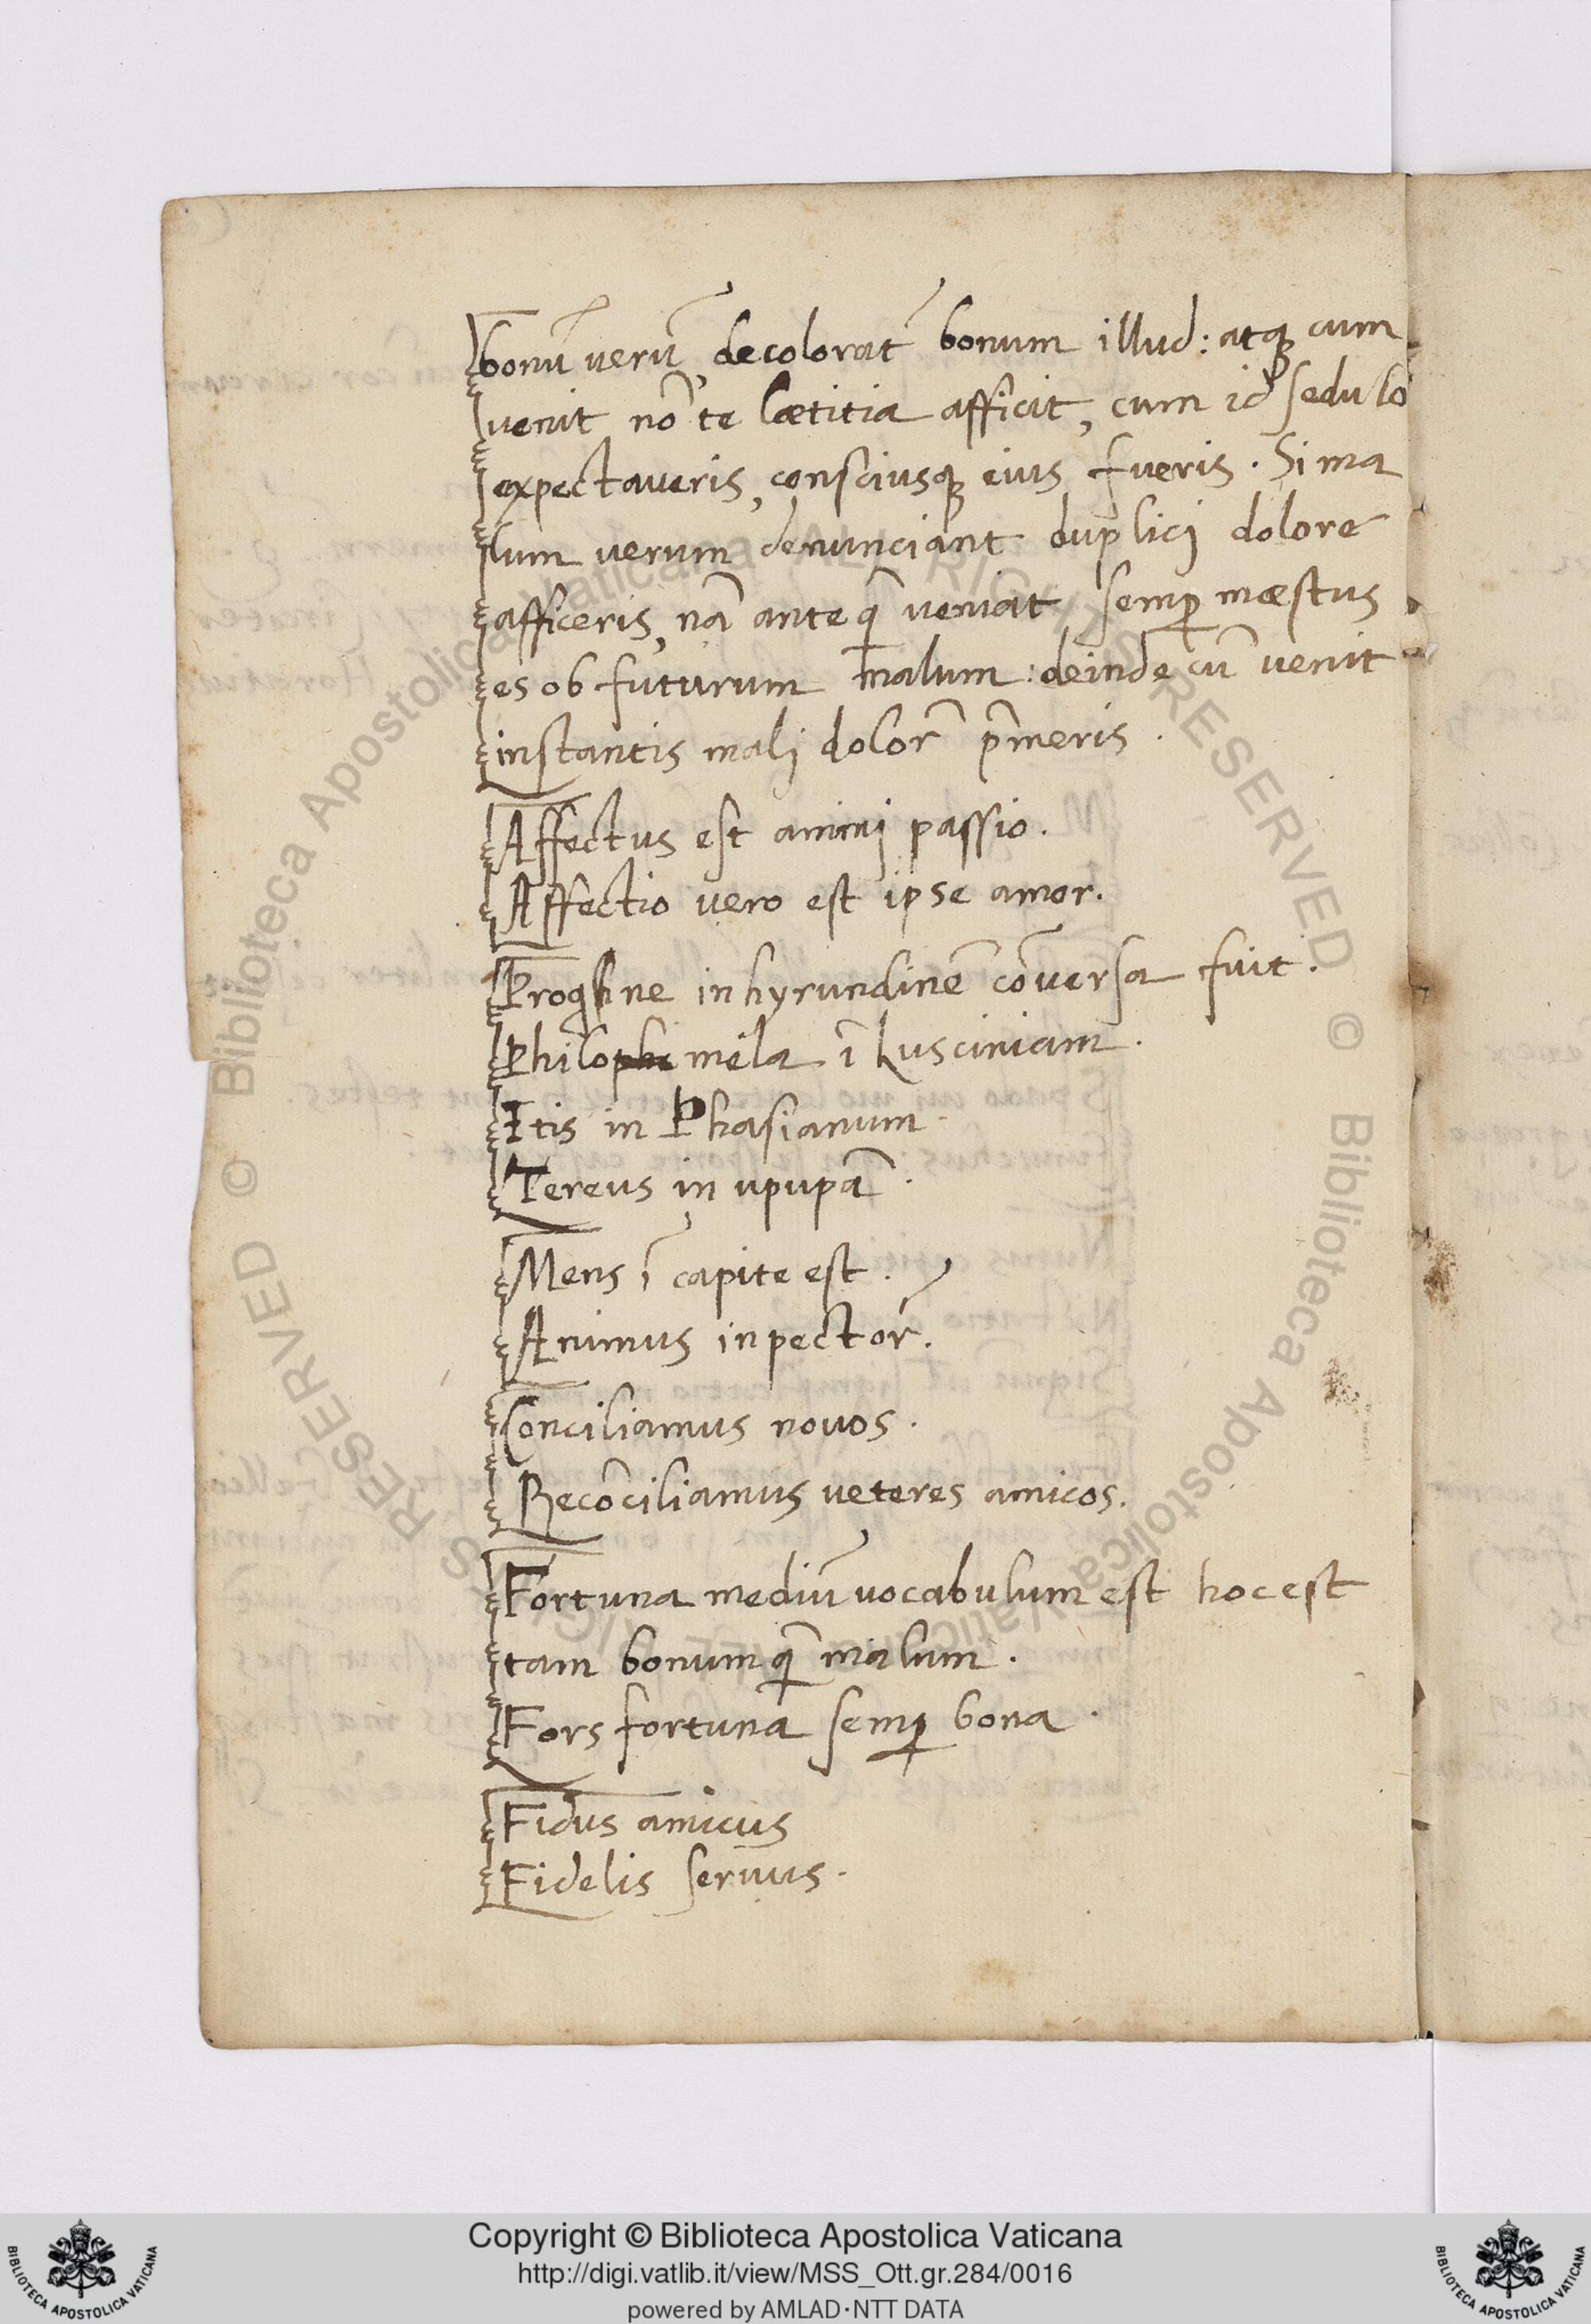 bonū verū, decolorat᷑ bonum illud: atq; cum
venit nō te lætitia afficit, cum id sedulo
expectaveris, consciusq; eius fueris. Si ma
lum verum denunciant duplicj dolore
afficeris, nā anteq̄ veniat semp̱ mæstus
es ob futurum malum: deinde cū venit
instantis malj dolor᷑ p̄meris.
Affectus est animj passio.
Affectio vero est ipse amor.
Proghne in hyrundinē cōversa fuit.
Philophe mela ī Lusciniam.
Itis in Phasianum.
Tereus in upupā.
Mens ī capite est.
Animus in pector᷑.
Conciliamus novos.
Recōciliamus veteres amicos.
Fortuna mediū vocabulum est hoc est
tam bonum q̄ malum.
Fors fortuna semp̱ bona.
Fidus amicus
Fidelis servus.
Copyright © Biblioteca Apostolica Vaticana
http://digi.vatlib.it/view/MSS_Ott.gr.284/0016
powered by AMLAD·NTT DATA
BIBLIOTECA APOSTOLICA VATICANA
BIBLIOTECA APOSTOLICA VATICANA